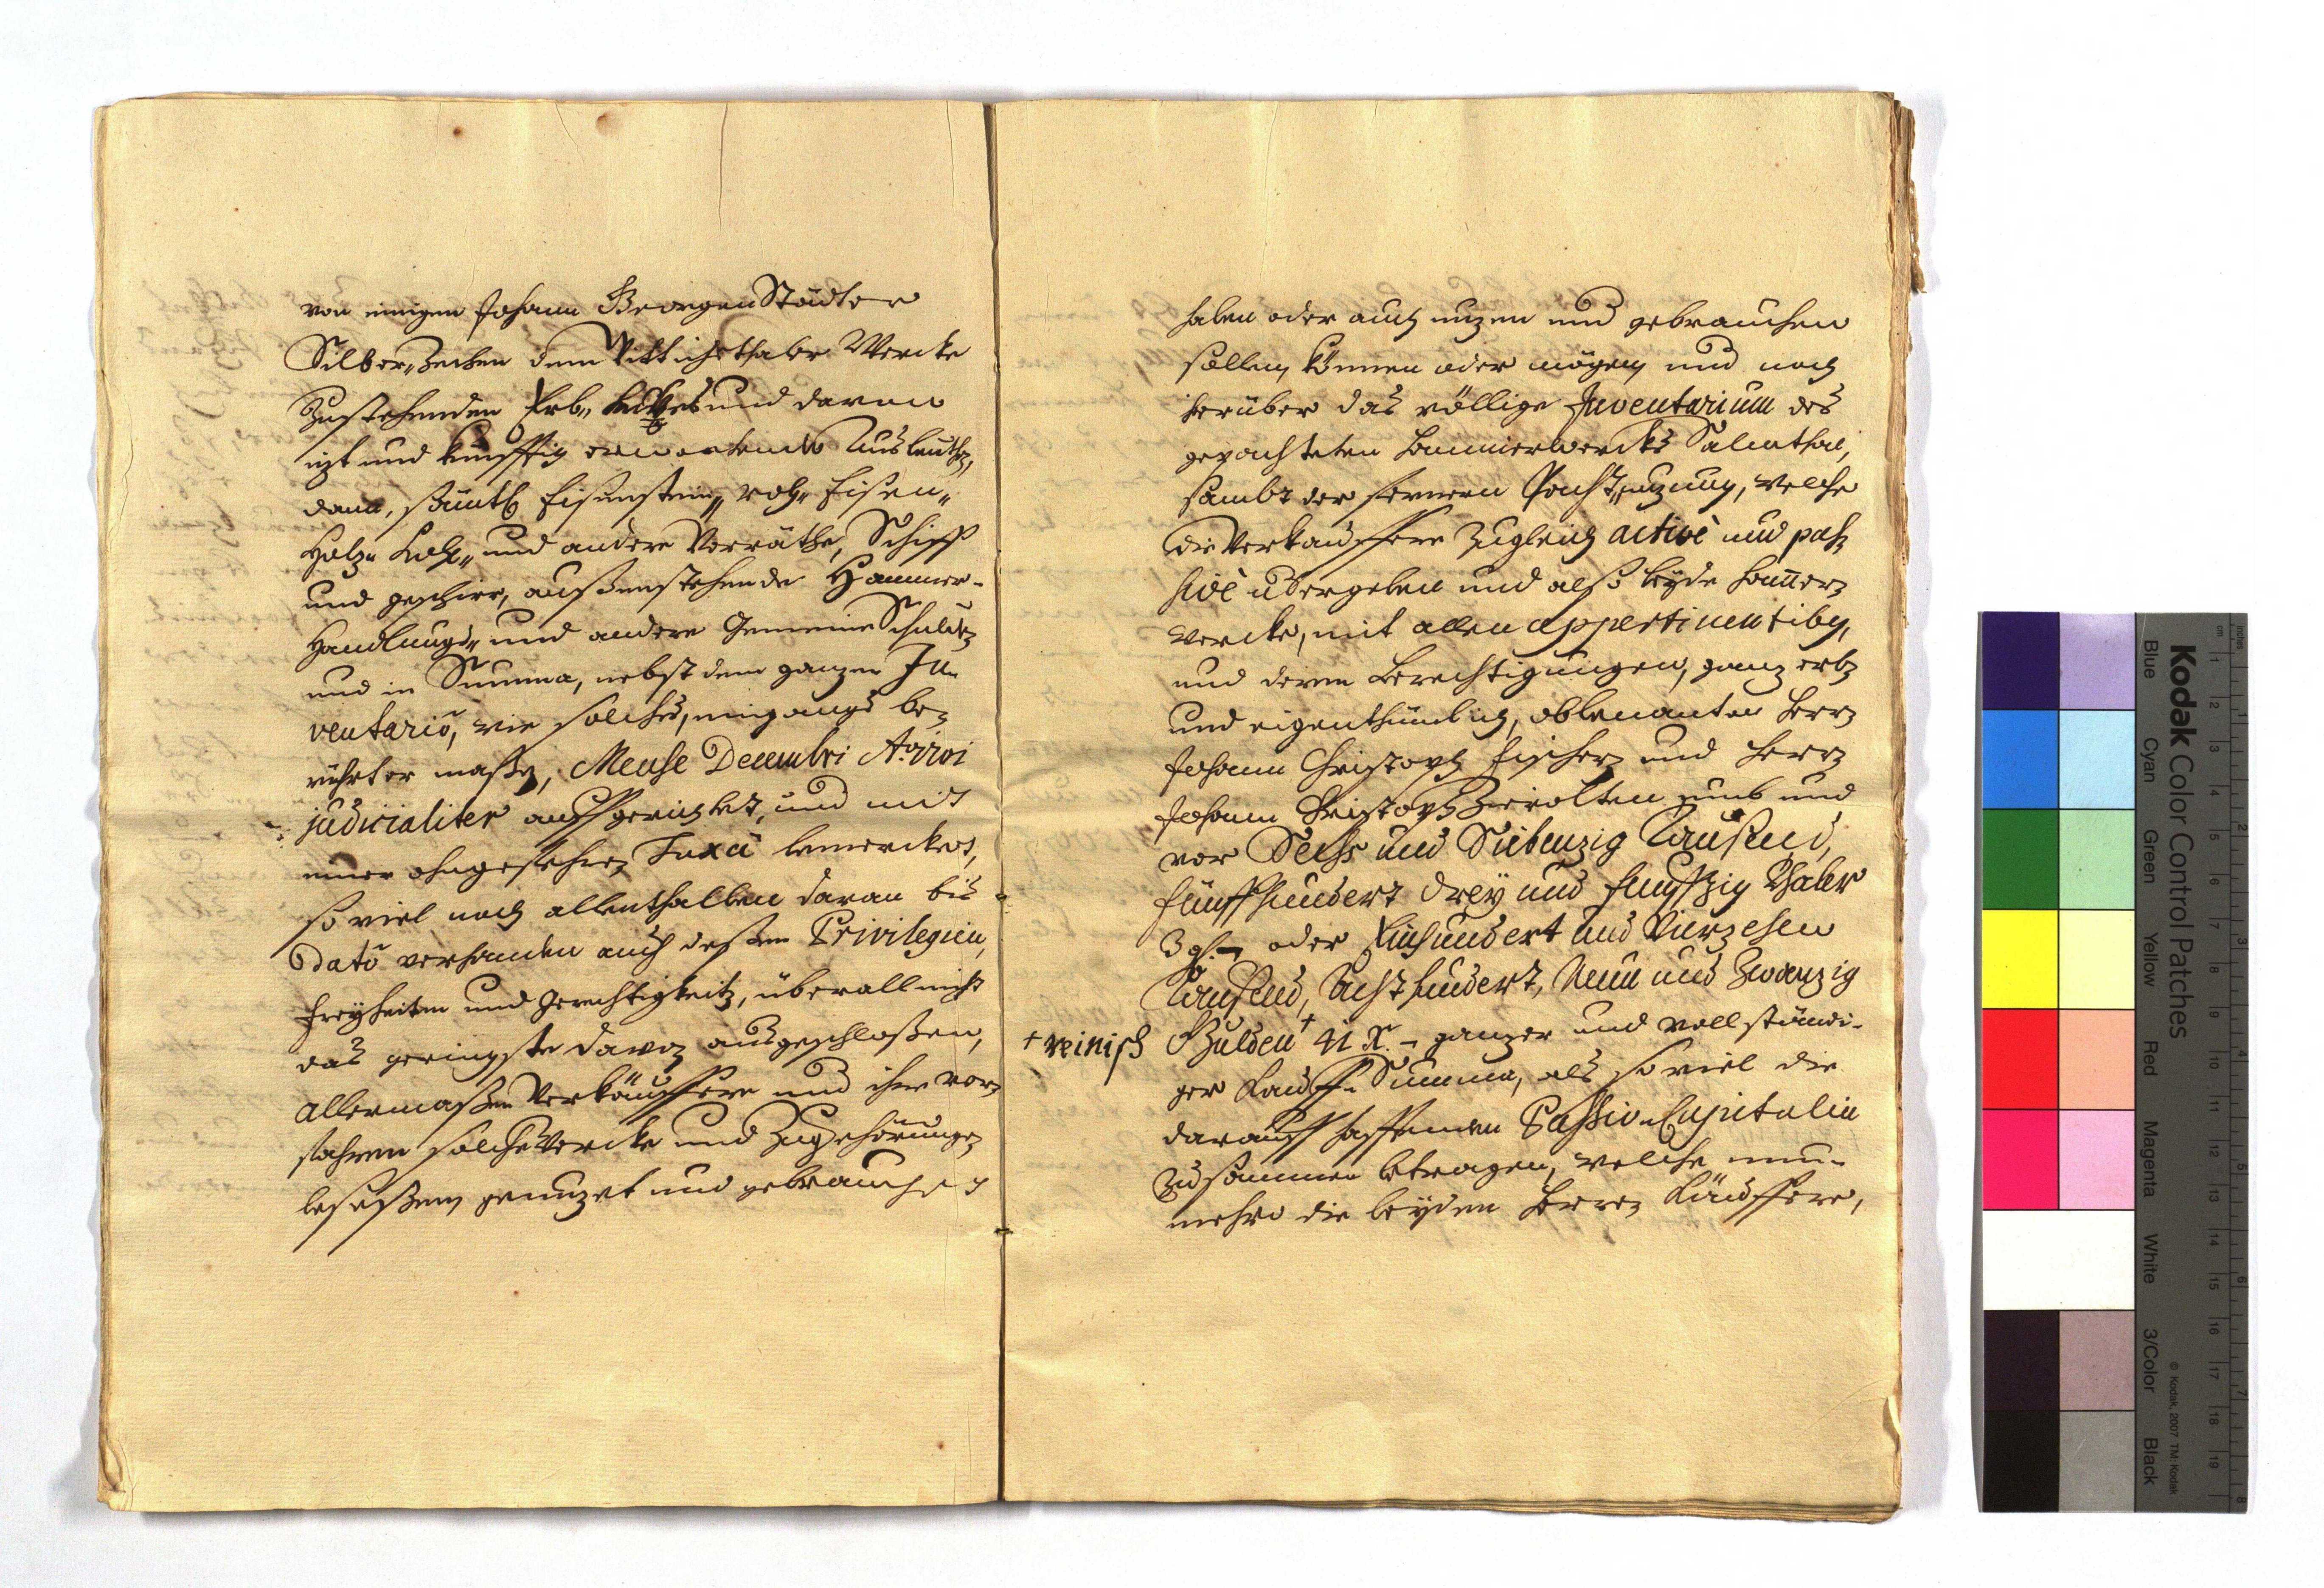 von einigen Johann Georgen Städter
Silber„Zechen dem Wittichsthaler Wercke
Zustehenden Erb„ Kuckes und davon
izt und künfftig erwartende Ausbeuthe,
dann, sämtl Eisenstein„ roh„ Eisen„
Holz„ Kohl„ und andere Vorräthe, Schiff
und geschirr, außenstehende Hammer-
Handlungs„ und andere Gemeine Schulden
und in Summa, nebst dem ganzen In-
ventario, wie solches, eingangs be-
rührter maßen, Mense Decembri Ao.
judicialiter auffgerichtet, und mit
einer ohngefehren Taxa bemercket,
so viel noch allenthalben daran bis
Dato verhanden auch deßen Privilegien,
Freyheiten und Gerechtigkeit, überall nicht
das geringste davon ausgeschloßen,
allermaßen Verkäuffere und ihre vor-
fahren solche Wercke und Zugehörungen
beseßen, genuzet und gebrauchet
haben oder auch nuzen und gebrauchen
sollen, können oder mögen, und noch
hierüber das völlige Inventarium des
gepachteten Hammerwercks
sambt der fernern Pacht„nuzung, welche
die Verkäuffere zugleich active und pas-
sive übergeben und also beyde Hammer-
wercke, mit allen appertinentiby,
und deren Berechtigungen, ganz erb-
und eigenthümlich, obbenanten Herrn
Johann Christoph Fischern und Herrn
Johann Christoph umb und
vor Sechs und Siebenzig Tausend,
fünffhundert Drey und funffzig Thaler
3 gl. oder Einhundert und Vierzehen
Tausend, Achthundert, Neun und Zwanzig
+ reinisch
Gulden + ganzer und vollständi-
ger Kauff„Summa, als so viel die
darauff hafftenden Passiv„Capitalia
zusammen betragen, welche nun-
mehro die beyden Herren Käuffere,